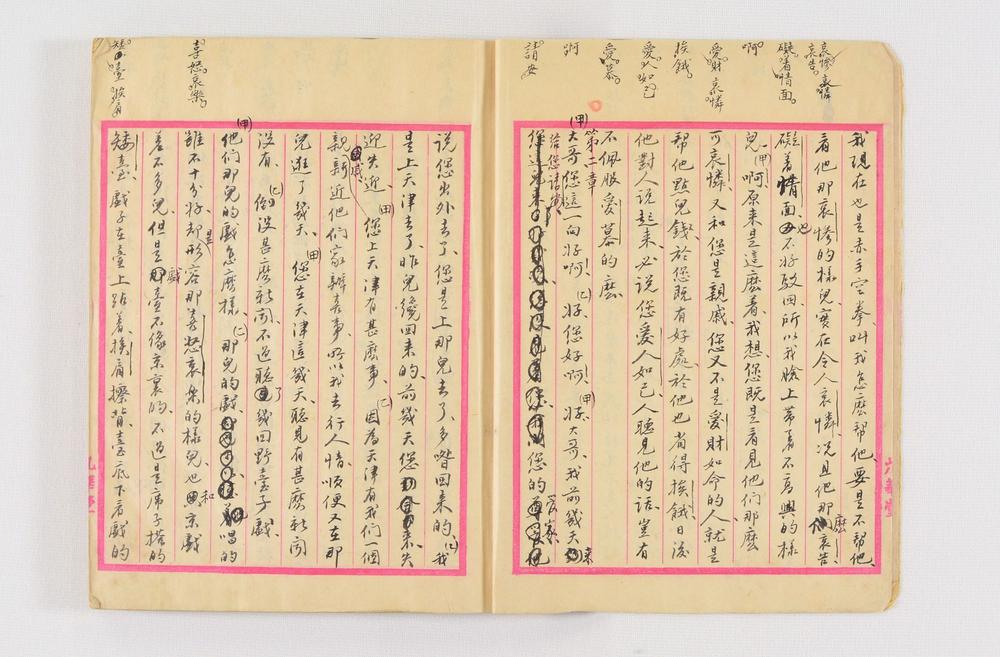 哀慘。哀憐
哀告。
礙着情面。
啊
愛財 哀憐
挨餓
愛人如己
愛慕。
啊
請安
我現在也是赤手空拳、叫我怎麽幫他、要是不幫他、
看他那哀慘的樣兒、實在令人哀憐、况且他那麽哀告、
礙着情面、也不好駁回、所以我臉上帶着不高興的樣
兒、(甲)啊、原来是這麽着、我想您既是看見他們那麽
可哀憐、又和您是親戚、您又不是愛財如命的人、就是
幫他點兒錢、於您既有好處、於他也省得挨餓、日後
他對人說起来、必說您愛人如己、人聽見他的話、豈有
不佩服愛慕的麽、
第二章
(甲)大哥、您這一向好啊、(乙)好、您好啊、(甲)大哥、我前幾天来
給您請安
您的
喜怒哀樂。
挨肩
說您出外去了、您是上那兒去了、多喒回来的、(乙)我
是上天津去了、昨兒纔回来的、前幾天您来、失
迎失迎、(甲)您上天津有甚麽事、(乙)因為天津有我們一個
親戚、新近他們家辦喜事、所以我去行人情、順便又在那
兒逛了幾天、(甲)您在天津這幾天、聽見有甚麽新聞
没有、(乙)倒没甚麽新聞、不過聽了幾回野臺子戲、
(甲)他們那兒的戲怎麽樣、(乙)那兒的戲、唱的
雖不十分好、却是形容那喜怒哀樂的樣兒、也和京戲
差不多兒、但是戲臺不像京裏的、不過是席子搭的
矮臺、戲子在臺上站着、挨肩擦背、臺底下看戲的